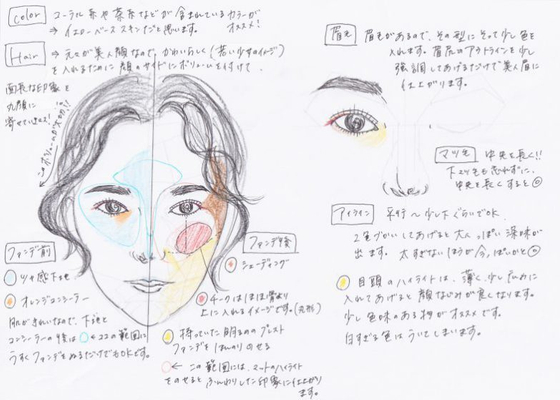 color コーラル系や茶系などが含まれているカラーが
⇒ イエローベーススキンだと思います。オススメ!
Hair ⇒ 元々が美人顔なので、かわいらしく(若い女のイメージ)
を入れるために顔のサイドにボリュームを付けて、
面長な印象を
丸顔に
寄せていきます!
眉毛 眉毛があるので、その型にそって少し色を
入れます。眉尻のアウトラインを少し
強調してあげるだけで美人眉に
仕上がります。
マツ毛 中央を長く!!
下まつ毛も忘れずに、
中央を長くすると◎
アイライン 平行〜少し下ぐらいでOK.
2色づかいしてあげると大人っぽい深味が
出ます。太すぎないほうが今っぽいかと
目頭のハイライトは、薄く、少し広めに
入れてあげると顔なじみが良くなります。
少し色味のある物がオススメです。
白すぎる色はういてしまいます。
ファンデ前
ツヤ感下地
オレンジコンシーラー
肌がきれいなので、下地と
コンシーラーの後は ←ココの範囲に
うすくファンデをぬるだけでもOKです。
ファンデ後
シェーディング
チークはほほ骨より
上に入れるイメージです。(丸形)
持っていた明るめのプレスト
ファンデをほんのりのせる
← この範囲には、マットのハイライト
をのせるとふんわりした印象に仕上がり
ます。